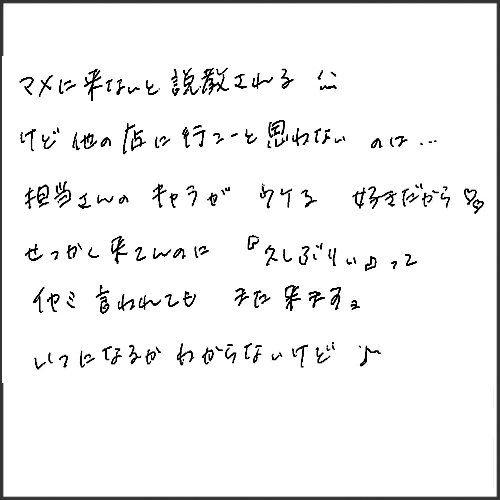 マメに来ないと説教される ^^;
けど他の店に行こーと思わない のは…
担当さんの キャラが ウケる 好きだから♡♡
せっかく来てんのに 『久しぶりぃ』って
イヤミ言われても また来ますょ
いつになるかわからないけど ♪